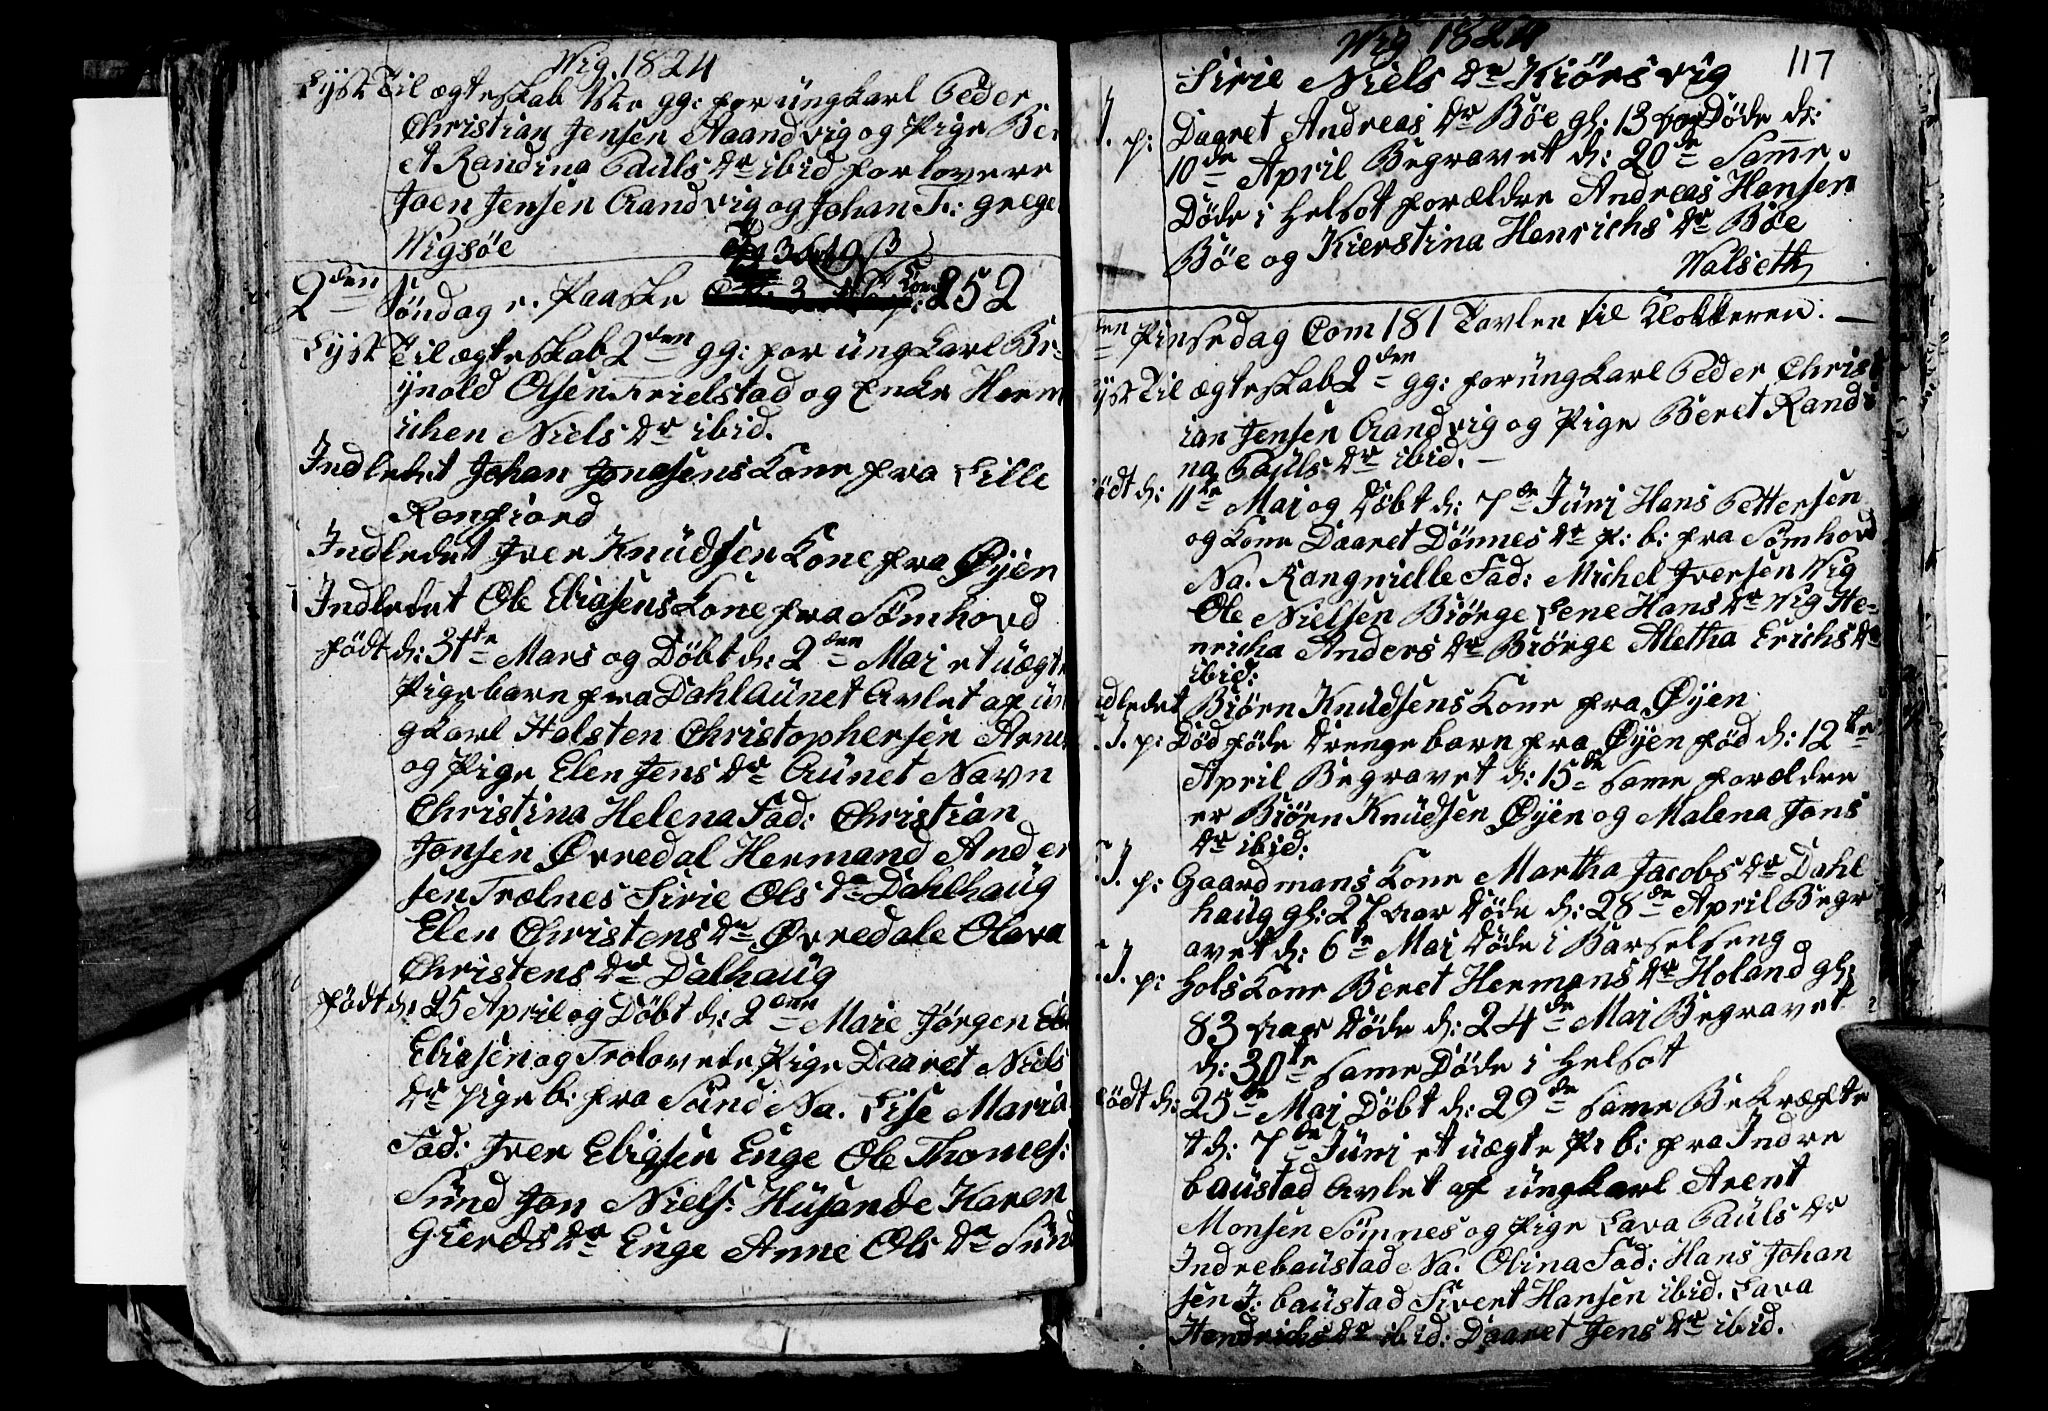 Wig 1824
Lyst Til ægteskab 1ste gg: for ungkarl Peder
Christian Jensen Aaandvig og Pige Ber
et Randina Pauls dr ibid forlovere
Joen Jensen Aandvig og Johan
Wigsøe
2den Søndag e. Paaske Com: 252
Lyst Til ægteskab 2den gg: for ungkarl Br
ynold Olsen Trielstad og Enke Hen
ichen Niels dr ibid.
Indledet Johan Jonasens Kone fra Lille
Rongfiord
Indledet Iver Knudsen Kone fra Øyen
Indledet Ole Eliasens Kone fra Sømhovd
født d: 31te Mars og Døbt d: 2den Mai et uægte
Pigebarn fra Dahlaunet Avlet af un
gkarl Halsten Christophersen
og Pige Elen Jens dr Aunet Navn
Christina Helena Fad: Christian
Jonsen Øvredal Hermand Ander
sen Trælnes Sirie Ols dr Dahlhaug
Elen Christens dr Øvredale Olava
Christens dr Dalhaug
født d: 25 April og Døbt d: 2den Maie Jørgen
Eliasen og Trolovede Pige Daaret Niels
dr Pige b: fra Sund Na. Lise Maria
Fad: Iver Eliasen Enge Ole Thomes:
Sund Jon Niels: Husande Karen
Gierts dr Enge Anne Ols dr Sund
Wig 1824
117
Sirie Niels dr Kiørsvig
J. p: Daaret Andreas dr Bøe gl: 13 aar Døde d:
10de April Begravet d: 20de Samme.
Døde i Helsot forældre Andreas Hansen
Bøe og Kierstina Henrichs dr Bøe
Walseth
den Pinsedag Com 181 Tavlen til Klokkeren:
yst Til ægteskab 2den gg: for ungkarl Peder Christ
ian Jensen Aandvig og Pige Beret Randi
na Pauls dr ibid.
ødt d: 11te Mai og Døbt d: 7de Juni Hans Pettersen
og Kone Daaret Dønnes dr p: b: fra Sømhovd
Na. Rangnielle Fad: Michel Iversen Wig
Ole Nielsen Biørge Lene Hans dr Wig He-
nricha Anders dr Biørge Aletha Erichs dr
ibid:
ndledet Biørn Knudsens Kone fra Øyen
J. p: Død føde Drengebarn fra Øyen fød d: 12te
April Begravet d: 15de same forældre
er Biørn Knudsen Øyen og Malena Jons
dr ibid:
J. p: Gaardmans Kone Martha Jacobs dr Dahl
haug gl: 27 aar Døde d: 28de April Begr
avet d: 6te Mai Døde i Barselseng
J. p: Hols Kone Beret Hermans dr Holand gl:
83 aar Døde d: 24de Mai Begravet
d: 30te same Døde i Helsot
født d: 25de Mai Døbt d: 29de same Bekræfte
t d: 7de Juni et uægte Pi b: fra Indre
baustad Avlet af ungkarl Arent
Monsen Sømnes og Pige Lava Pauls dr
Indrebaustad Na. Olina Fad: Hans Johan
sen I: baustad Sivert Hansen ibid. Lava
Hendrichs dr ibid: Daaret Jens dr ibid.